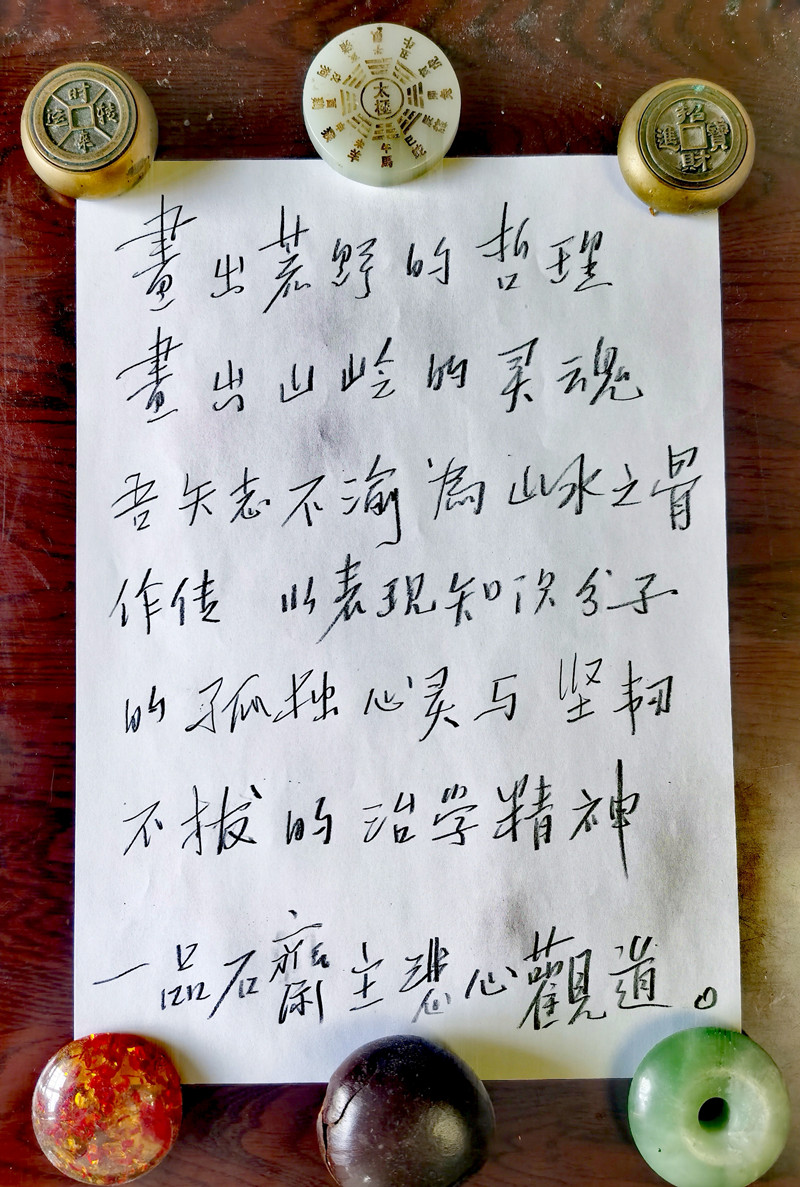 太極
招財進寶
時來運轉
畫出荒野的哲理
畫出山岭的灵魂
吾矢志不渝為山水之骨
作传 以表现知识分子
的孤独心灵与坚韧
不拔的治学精神
一品石齋主悲心觀道。